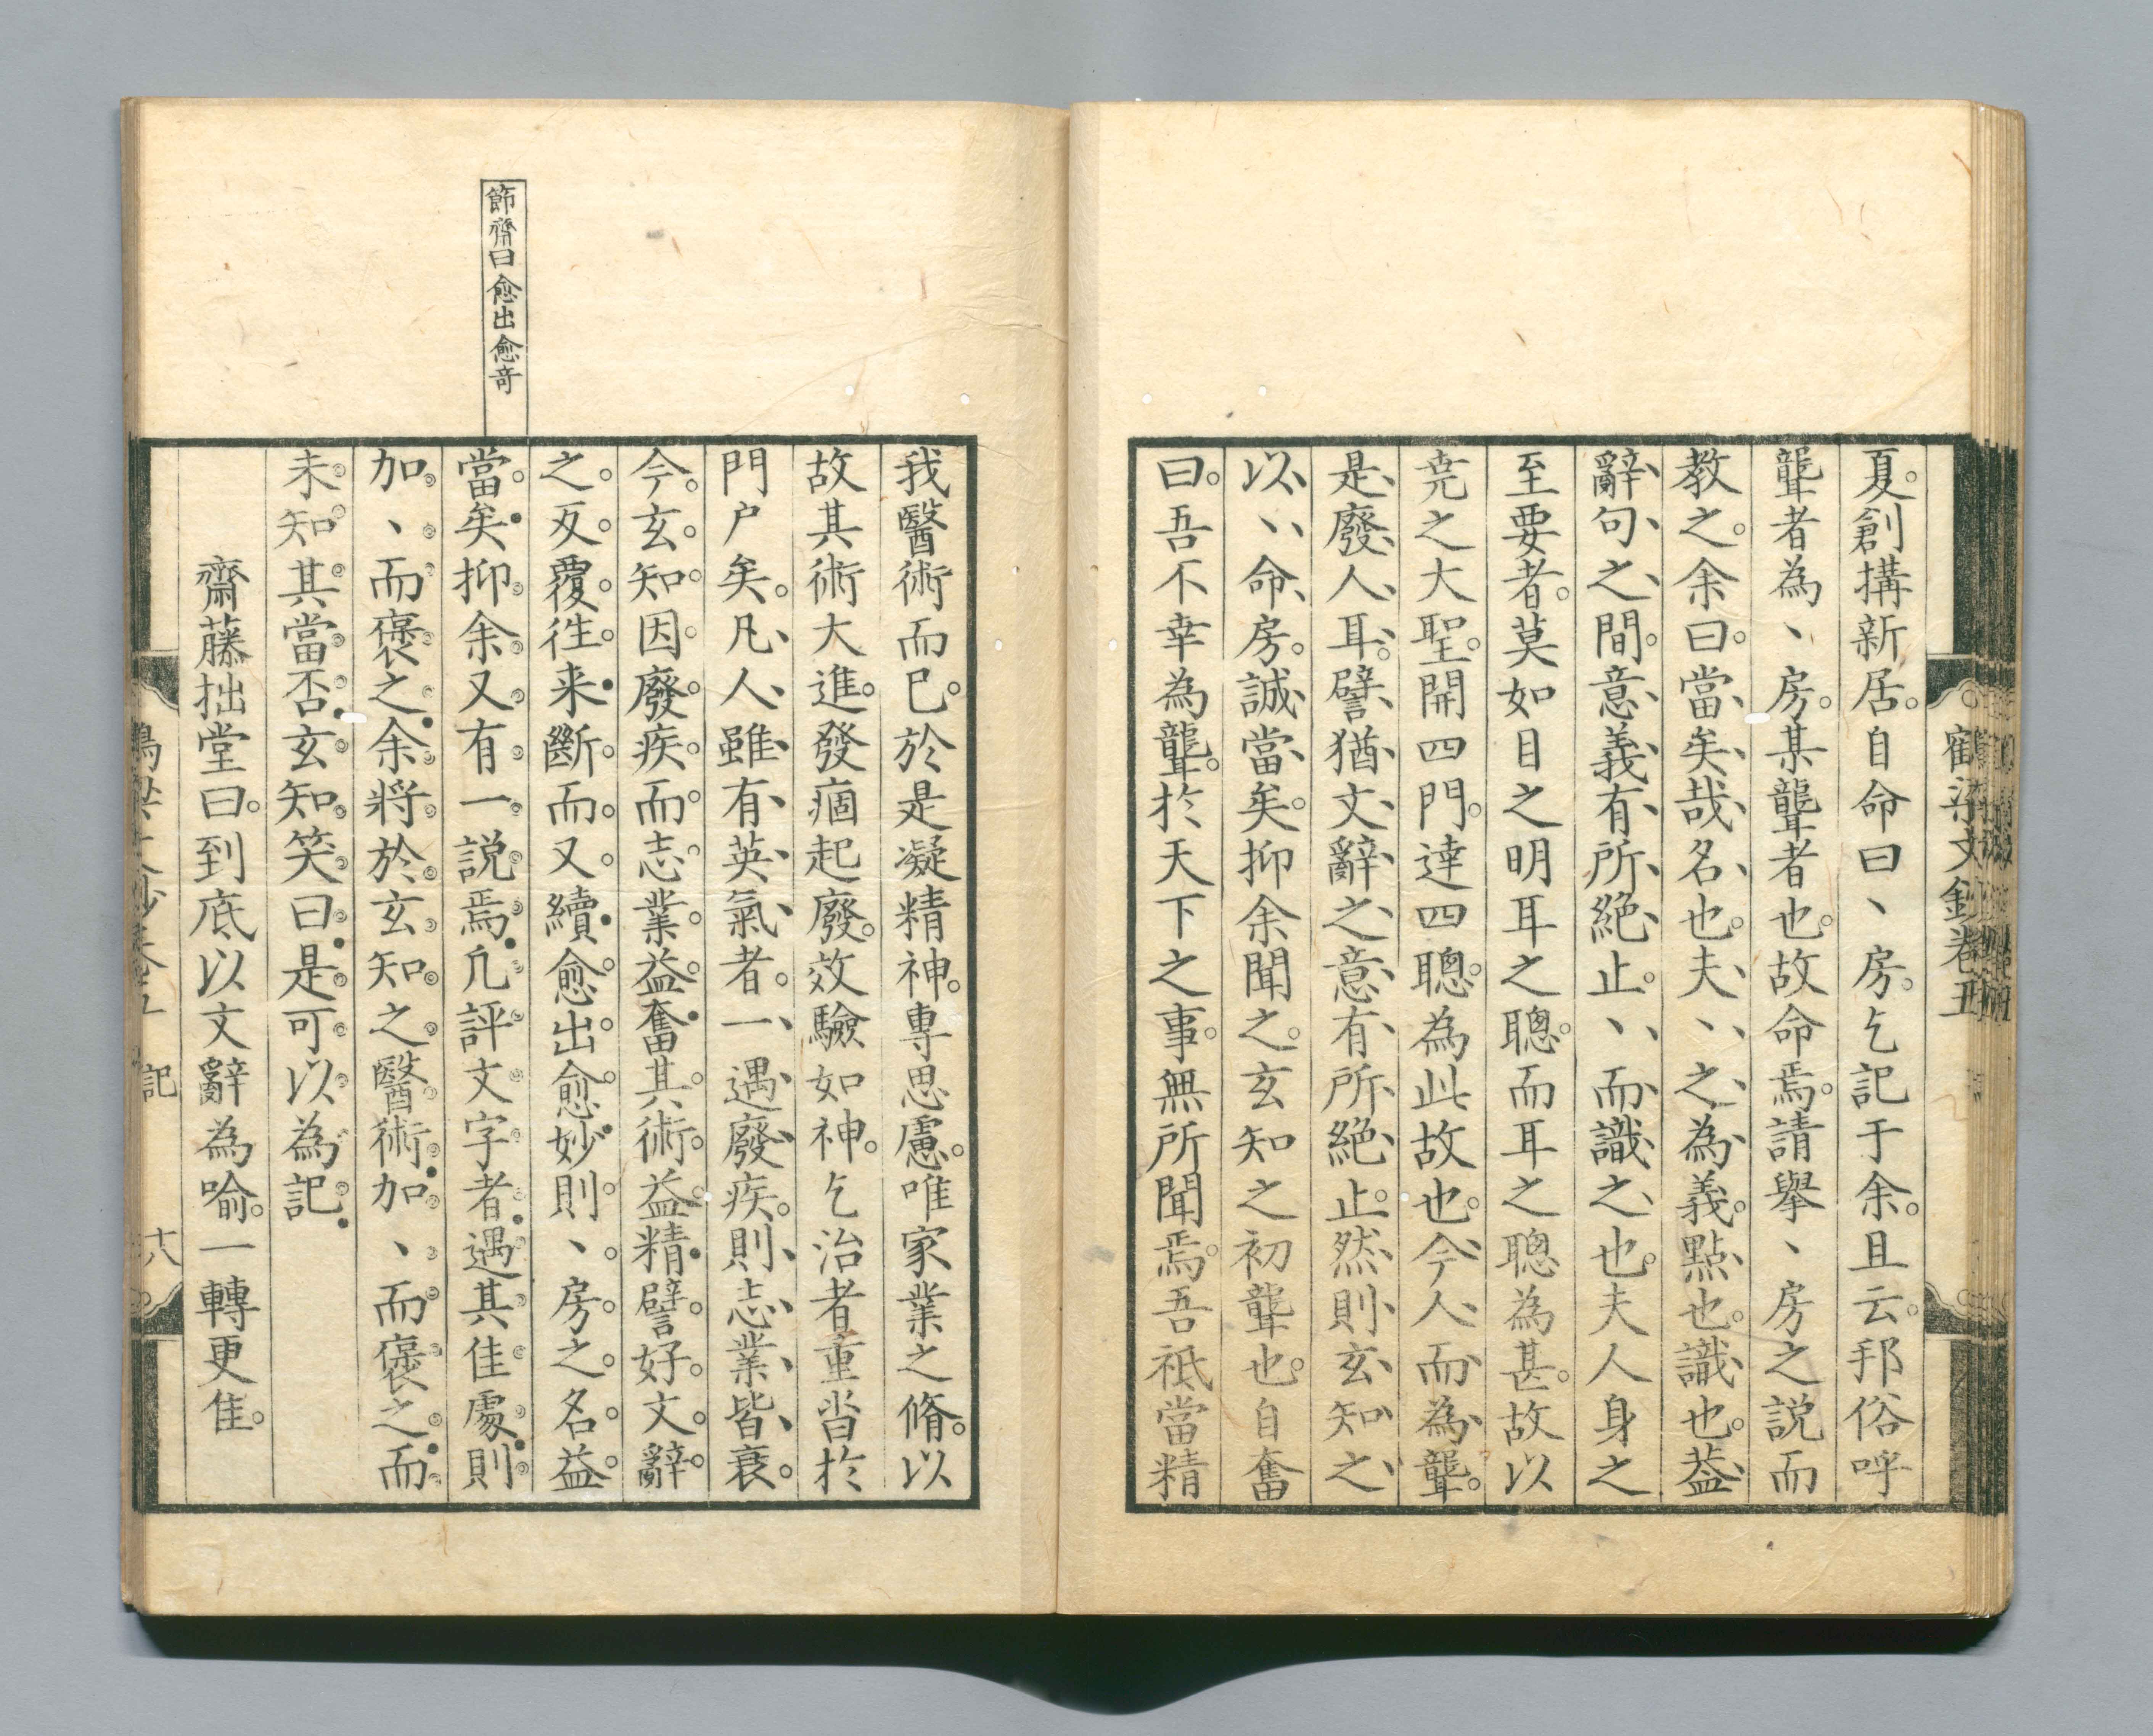 夏。創構新居。自命曰、房。乞記于余。且云。邦俗呼
聾者為、房。某聾者也。故命焉。請舉、房之説而
教之。余曰。當矣哉名也。夫、之為義。點也。識也。蓋
辭句之間。意義有所絶止。、而識之也。夫人身之
至要者。莫如目之明耳之聰。而耳之聰為甚。故以
堯之大聖。開四門。達四聰。為此故也。今人而為聾。
是廢人耳。譬猶文辭之意有所絶止。然則玄知之
以、命房。誠當矣。抑余聞之。玄知之初聾也。自奮
曰。吾不幸為聾。於天下之事。無所聞焉。吾祇當精
鶴梁文鈔卷五
節齋曰愈出愈奇
我醫術而已。於是凝精神。專思慮。唯家業之脩。以
故其術大進。發痼起廢。效驗如神。乞治者重沓於
門戸矣。凡人雖有英氣者。一遇廢疾。則志業皆衰。
今玄知因廢疾而志業益奮。其術益精。譬好文辭
之反覆往来。斷而又續。愈出愈妙。則、房之名益
當矣。抑余又有一説焉。凡評文字者。遇其佳處。則
加、而褒之。余將於玄知之醫術。加、而褒之。而
未知其當否。玄知笑曰。是可以為記。
齋藤拙堂曰。到底以文辭為喩。一轉更佳。
記
十八